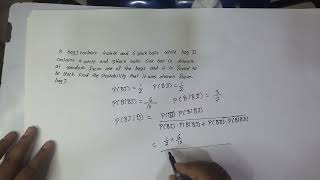 A bag I contains 4 white and 6 black balls while bag II
contains 4 white and 3 black balls. One ball is drawn
at random from one of the bags and it is found to
be black. Find the probability that it was drawn from
bag I.
P(BI) = 1/2 P(BII) = 1/2
P(B|BI) = 6/10 P(B|BII) = 3/7
P(BI|B) = P(BI) . P(B|BI) / P(BI) . P(B|BI) + P(BII) . P(B|BII)
= 1/2 × 6/10